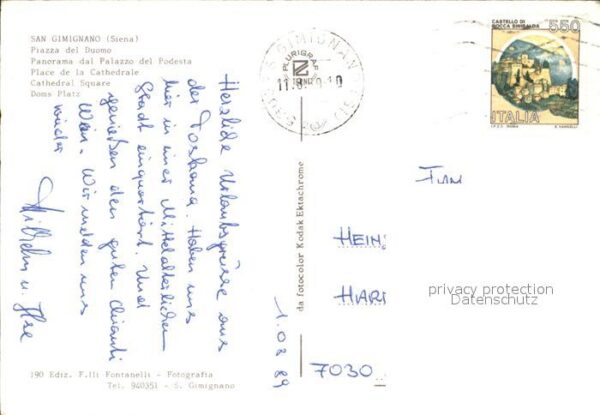 SAN GIMIGNANO (Siena)
Piazza del Duomo
Panorama dal Palazzo del Podesta
Place de la Cathedrale
Cathedral Square
Doms Platz
Herzliche Urlaubsgrüsse aus
der Toskana. Haben uns
hier in einer Mittelalterlichen
Stadt einquartiert. Und
genießen den guten Chianti
Wein. Wir melden uns
wieder
Wilhelm u. Ilse
1.08.89
190 Ediz. F.lli Fontanelli - Fotografia
Tel. 940351 - S. Gimignano
da fotocolor Kodak Ektachrome
PLURIGRAF
S. GIMIGNANO
11.8.
CASTELLO DI
ROCCA SINIBALDA
550
ITALIA
I.P.Z.S. ROMA
HEIN
HARR
7030
privacy protection
Datenschutz